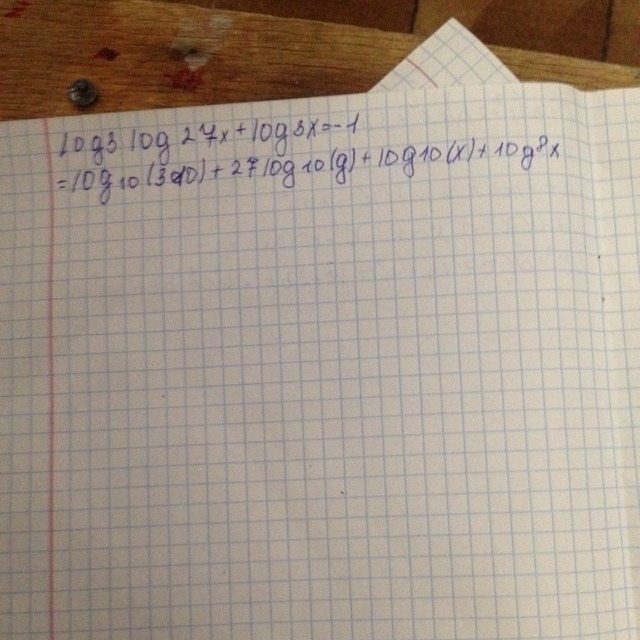 log3 log 27x+log3x=-1
=log10(3010)+27log10(g)+log10(x)+log³x